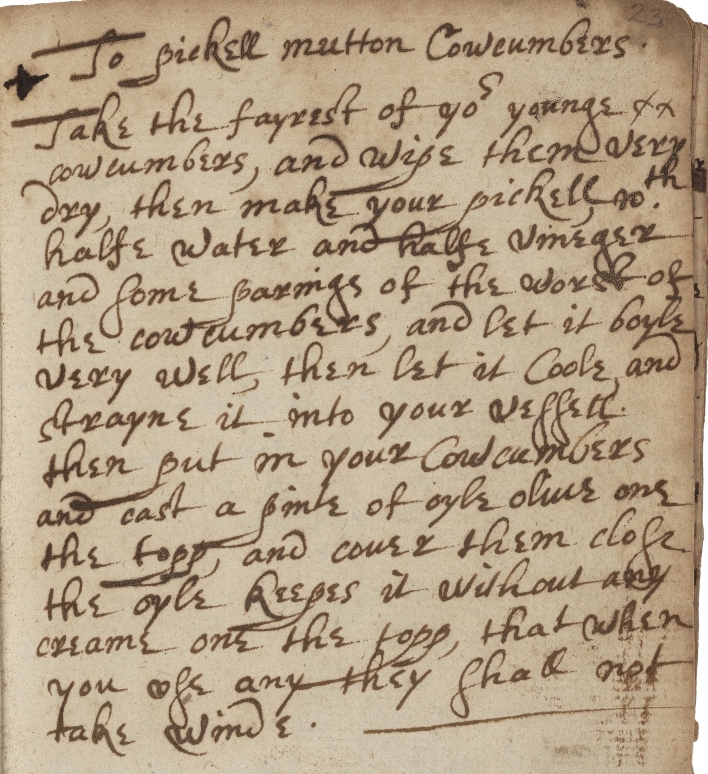 23
To pickell mutton Cowcumbers.
Take the fayrest of yor younge xx
cowcumbers, and wipe them very
dry, then make your pickell, wth
halfe water and halfe vineger
and some parings of the worst of
the cowcumbers, and let it boyle
very well, then let it Coole, and
strayne it into your vessell.
then put in your Cowcumbers
and cast a pinte of oyle olive one
the topp, and cover them close
the oyle keepes it without any
creame one the topp, that when
you use any they shall not
take winde.